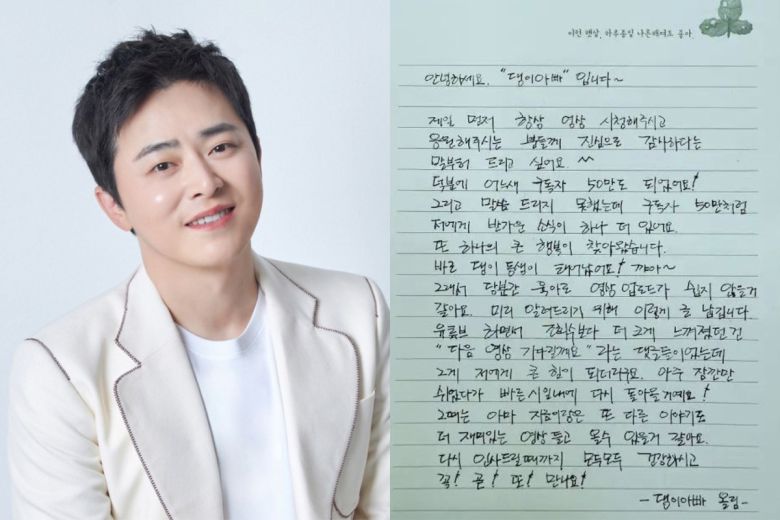 이런 햇살, 하루종일 나른해져도 좋아.
안녕하세요. "댕이아빠" 입니다~
제일 먼저 항상 영상 시청해주시고
응원해주시는 분들께 진심으로 감사하다는
말부터 드리고 싶어요. ^^
덕분에 어느새 구독자 50만도 되었어요!
그리고 말씀 드리지 못했는데 구독자 50만처럼
저에게 반가운 소식이 하나 더 있어요.
또 하나의 큰 행복이 찾아왔습니다.
바로 댕이 동생이 태어났어요! 꺄아~
그래서 당분간 육아로 영상 업로드가 쉽지 않을거
같아요. 미리 알려드리기 위해 이렇게 글 남깁니다
유튜브 하면서 조회수보다 더 크게 느껴졌던 건
"다음 영상 기다릴게요" 라는 댓글들이었는데
그게 저에게 큰 힘이 되더라구요. 아주 잠깐만
쉬었다가 빠른 시일내에 다시 돌아올거예요!
그때는 아마 지금이랑은 또 다른 이야기로
더 재미있는 영상 들고 올수 있을거 같아요.
다시 인사드릴때까지 모두모두 건강하시고
꼭! 곧! 또! 만나요!
- 댕이아빠 올림 -